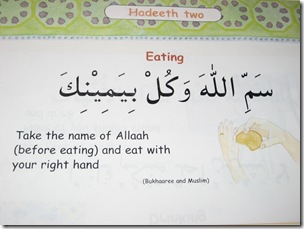 Hadeeth two
Eating
سَمِّ اللّٰهَ وَكُلْ بِيَمِيْنِكَ
Take the name of Allaah
(before eating) and eat with
your right hand
(Bukhaaree and Muslim)